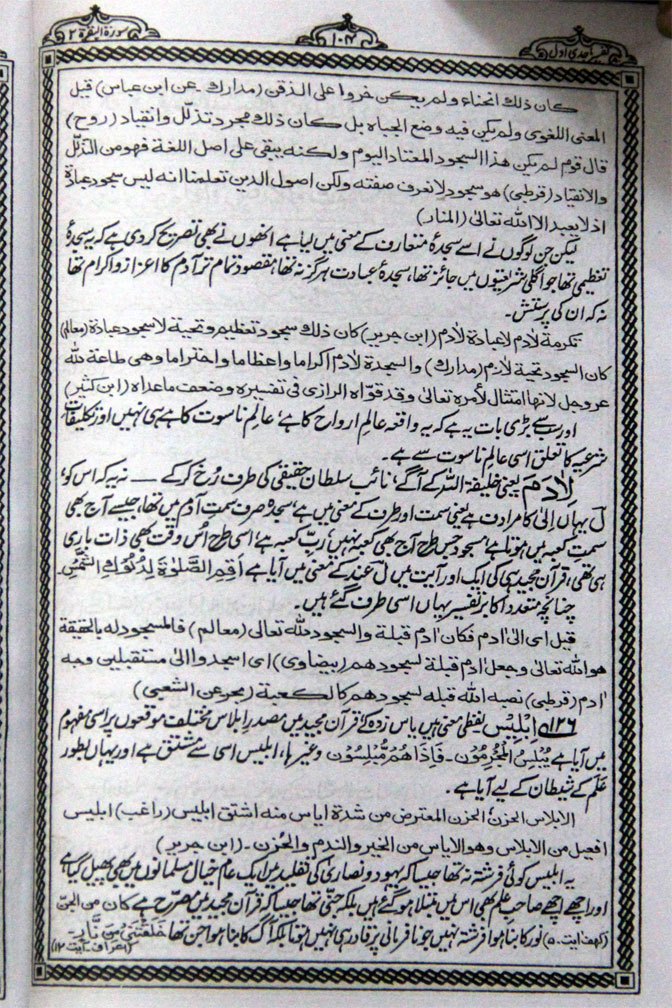 سورة البقرة ٢
١٠٤
تفسیر ماجدی اول
كان ذلك انحناء ولم يكن خروا على الذقن (مدارك - عن ابن عباس) قيل
المعنى اللغوى ولم يكن فيه وضع الجباه بل كان ذلك مجرد تذلل وانقياد (روح)
قال قوم لم يكن هذا السجود المعتاد اليوم ولكنه يبقى على اصل اللغة فهو من التذلل
والانقياد (قرطبى) هو سجود لا نعرف صفته ولكن اصول الدين تعلمنا انه ليس سجود عبادة
اذ لا يعبد الا الله تعالى (المنار)
لیکن جن لوگوں نے اسے سجدۂ متعارف کے معنی میں لیا ہے انھوں نے بھی تصریح کر دی ہے کہ یہ سجدۂ
تعظیمی تھا جو اگلی شریعتوں میں جائز تھا، سجدۂ عبادت ہرگز نہ تھا، مقصود تمام تر آدم کا اعزاز و اکرام تھا
نہ کہ ان کی پرستش۔
تكرمة لادم لا عبادة لادم (ابن جرير) كان ذلك سجود تعظيم وتحية لا سجود عبادة (معالم)
كان السجود تحية لادم (مدارك) والسجدة لادم اكراما واعظاما واحتراما وهى طاعة لله
عزوجل لانها امتثال لأمره تعالى وقد قواه الرازى فى تفسيره وضعف ماعداه (ابن كثير)
اور سب سے بڑی بات یہ ہے کہ یہ واقعہ عالم ارواح کا ہے، عالم ناسوت کا ہے ہی نہیں اور تکلیفات
شرعیہ کا تعلق اسی عالم ناسوت سے ہے۔
لِاٰدَمَ یعنی خلیفۃ اللہ کے آگے، نائب سلطان حقیقی کی طرف رُخ کر کے — نہ یہ کہ اس کو،
لِ یہاں اِلیٰ کا مرادف ہے یعنی سمت اور طرف کے معنی میں ہے، سجدہ صرف سمت آدم میں تھا، جیسے آج بھی
سمت کعبہ میں ہوتا ہے، مسجود جس طرح آج بھی کعبہ نہیں، ربِّ کعبہ ہے، اسی طرح اُس وقت بھی ذات باری
ہی تھی، قرآن مجید ہی کی ایک اور آیت میں لِ عند کے معنی میں آیا ہے اَقِمِ الصَّلٰوةَ لِدُلُوْكِ الشَّمْسِ
چنانچہ متعدد اکابر تفسیر یہاں اسی طرف گئے ہیں۔
قيل اى الى ادم فكان ادم قبلة والسجود لله تعالى (معالم) فالمسجود له بالحقيقة
هو الله تعالى وجعل ادم قبلة لسجودهم (بيضاوى) اى اسجدوا الى مستقبلين وجه
ادم (قرطبى) نصبه الله قبله لسجودهم كالكعبة (بحر عن الشعبى)
۱۲۶ اِبْلِیْسَ لفظی معنی ہیں یاس زدہ کے قرآن مجید میں مصدر ابلاس مختلف موقعوں پر اسی مفہوم
میں آیا ہے يُبْلِسُ الْمُجْرِمُوْنَ - فَاِذَا هُمْ مُّبْلِسُوْنَ وغیرہا، ابلیس اسی سے مشتق ہے اور یہاں بطور
عَلَم کے شیطان کے لیے آیا ہے۔
الابلاس الحزن؛ الحزن المعترض من شدة اياس منه اشتق ابليس (راغب) ابليس
افعيل من الابلاس وهو الاياس من الخير والندم والحزن - (ابن جرير)
یہ ابلیس کوئی فرشتہ نہ تھا جیسا کہ یہود و نصاریٰ کی تقلید میں ایک عام خیال مسلمانوں میں بھی پھیل گیا ہے
اور اچھے اچھے صاحب علم بھی اس میں مبتلا ہو گئے ہیں بلکہ جنّی تھا جیسا کہ قرآن مجید میں مصرّح ہے كان من الجن
(کہف آیت ۵۰) نور کا بنا ہوا فرشتہ نہیں جو نافرمانی پر قادر ہی نہیں ہوتا بلکہ آگ کا بنا ہوا جن تھا خَلَقْتَنِيْ مِنْ نَّارٍ - (اعراف - آیت ۱۲)